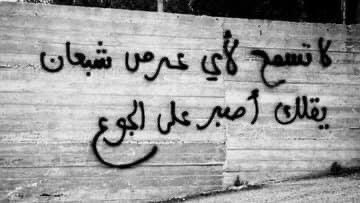 لا تسمح لأي عرص شبعان
يقلك أصبر على الجوع